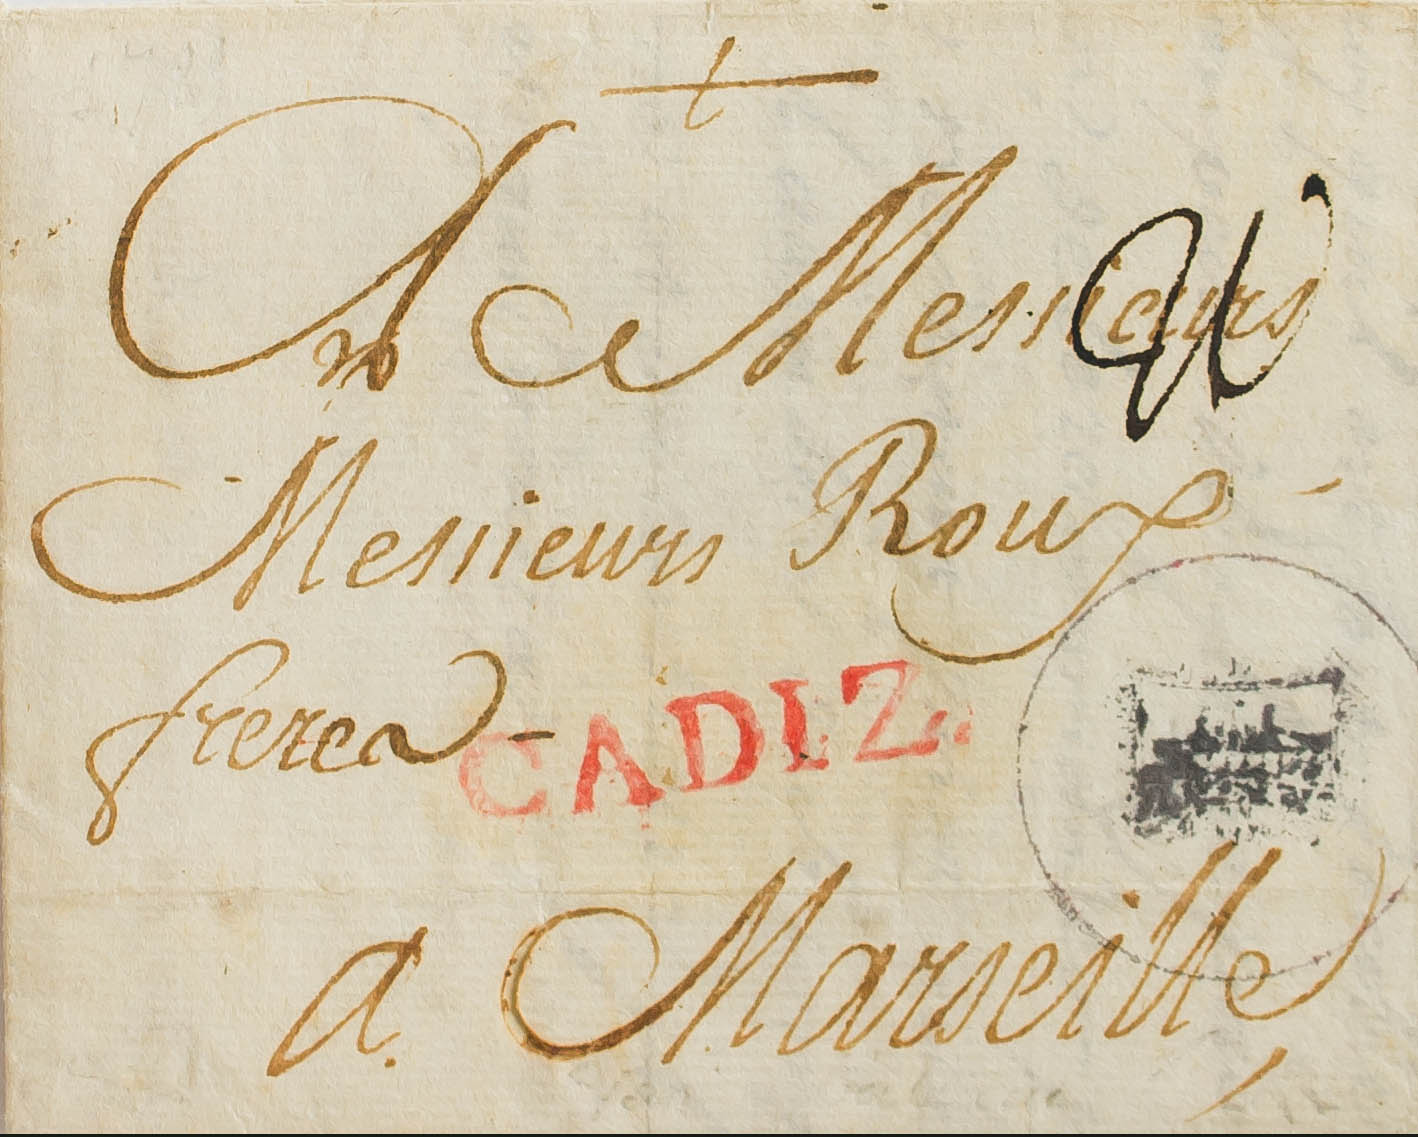 A Messieurs
Messieurs Roux
freres -
CADIZ
a. Marseille